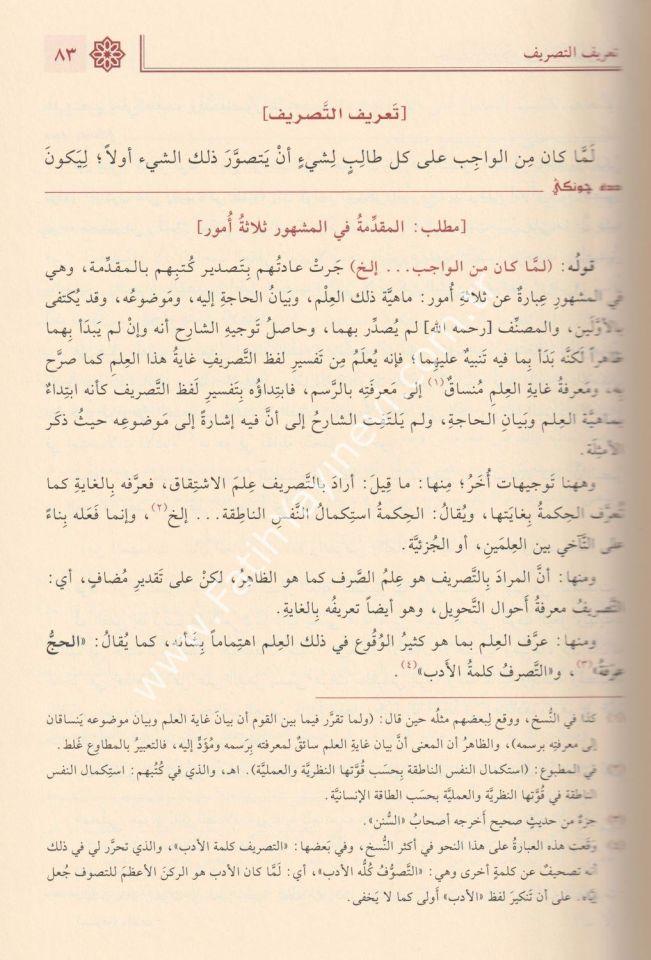 تعريف التصريف
٨٣
[تَعريف التَّصريف]
لَمَّا كان مِن الواجِب على كل طالِبٍ لِشيءٍ أنْ يَتصوَّرَ ذلك الشيء أولاً؛ لِيَكونَ
جونكي
[مطلب: المقدِّمةُ في المشهور ثلاثةُ أُمور]
قولُه: (لمَّا كان من الواجب... إلخ) جَرتْ عادتُهم بِتَصدير كُتبِهم بالمقدِّمة، وهي
في المشهورِ عِبارةٌ عن ثلاثةِ أُمور: ماهيَّة ذلك العِلْم، وبَيانُ الحاجةِ إليه، ومَوضوعُه، وقد يُكتفى
بالأوَّلَين، والمصنِّف [رحمه الله] لم يُصدِّر بهما، وحاصلُ توجيهِ الشارِح أنه وإنْ لم يَبدَأ بهما
ظاهراً لكنَّه بَدَأ بِما فيه تَنبيهٌ عليهِما؛ فإنه يُعلَمُ مِن تَفسيرِ لفظ التَّصريفِ غايةُ هذا العِلمِ كما صرَّح
بِه، ومَعرفةُ غايةِ العِلمِ مُنساقٌ(١) إلى مَعرفَتِه بالرَّسم، فابتِداؤُه بِتَفسيرِ لَفظ التَّصريف كأنه ابتِداءٌ
بماهيَّة العِلم وبَيانِ الحاجة، ولم يَلتَفِت الشارحُ إلى أنَّ فيه إشارةً إلى مَوضوعِه حيثُ ذكَر
الأمثِلَة.
وههنا تَوجيهات أُخَرُ؛ مِنها: ما قيلَ: أرادَ بالتَّصريف عِلمَ الاشتِقاق، فعرَّفه بِالغايةِ كما
تُعرَّف الحِكمةُ بِغايَتِها، ويُقالُ: الحِكمةُ استِكمالُ النَّفْسِ الناطِقة... إلخ(٢)، وإنما فَعَله بِناءً
على التَّآخي بين العِلمَينِ، أو الجُزئيَّة.
ومنها: أنَّ المرادَ بِالتَّصريف هو عِلمُ الصَّرف كما هو الظاهرُ، لكنْ على تَقديرِ مُضافٍ، أي:
التَّصريفُ معرفةُ أَحوال التَّحويل، وهو أيضاً تعريفُه بِالغاية.
ومنها: عرَّف العِلم بما هو كثيرُ الوُقُوع في ذلك العِلم اهتِماماً بِشأنه، كما يُقالُ: «الحجُّ
عرفةُ»(٣)، و«التَّصرفُ كلمةُ الأدب»(٤).
كذا في النُّسخ، ووقع لِبعضهم مثلُه حين قال: (ولما تقرَّر فيما بين القوم أن بيانَ غاية العلم وبيان موضوعه يَنساقان
إلى معرفتِه برسمه)، والظاهرُ أن المعنى أنَّ بيان غايةِ العلم سائقٌ لمعرفته بِرَسمه ومُؤَدٍّ إليه، فالتعبيرُ بالمطاوع غلط.
في المطبوع: (استكمال النفس الناطقة بِحسَب قُوَّتها النظريَّة والعمليَّة). اهـ، والذي في كُتُبهم: استِكمال النفس
الناطقة في قُوَّتها النظريَّة والعملية بحسَب الطاقة الإنسانيَّة.
جزءٌ من حديثٍ صحيح أَخرجه أصحابُ «السُّنن».
وقَعت هذه العبارةُ على هذا النحو في أكثر النُّسخ، وفي بَعضها: «التصريف كلمة الأدب»، والذي تحرَّر لي في ذلك
أنه تَصحيفٌ عن كلمةٍ أخرى وهي: «التَّصوُّفُ كُلُّه الأدب»، أي: لَمَّا كان الأدب هو الركنَ الأعظمَ للتصوف جُعل
إيَّاه. على أن تَنكيرَ لفظ «الأدب» أَولى كما لا يَخفى.
www.Fatihyayinevi.com.tr